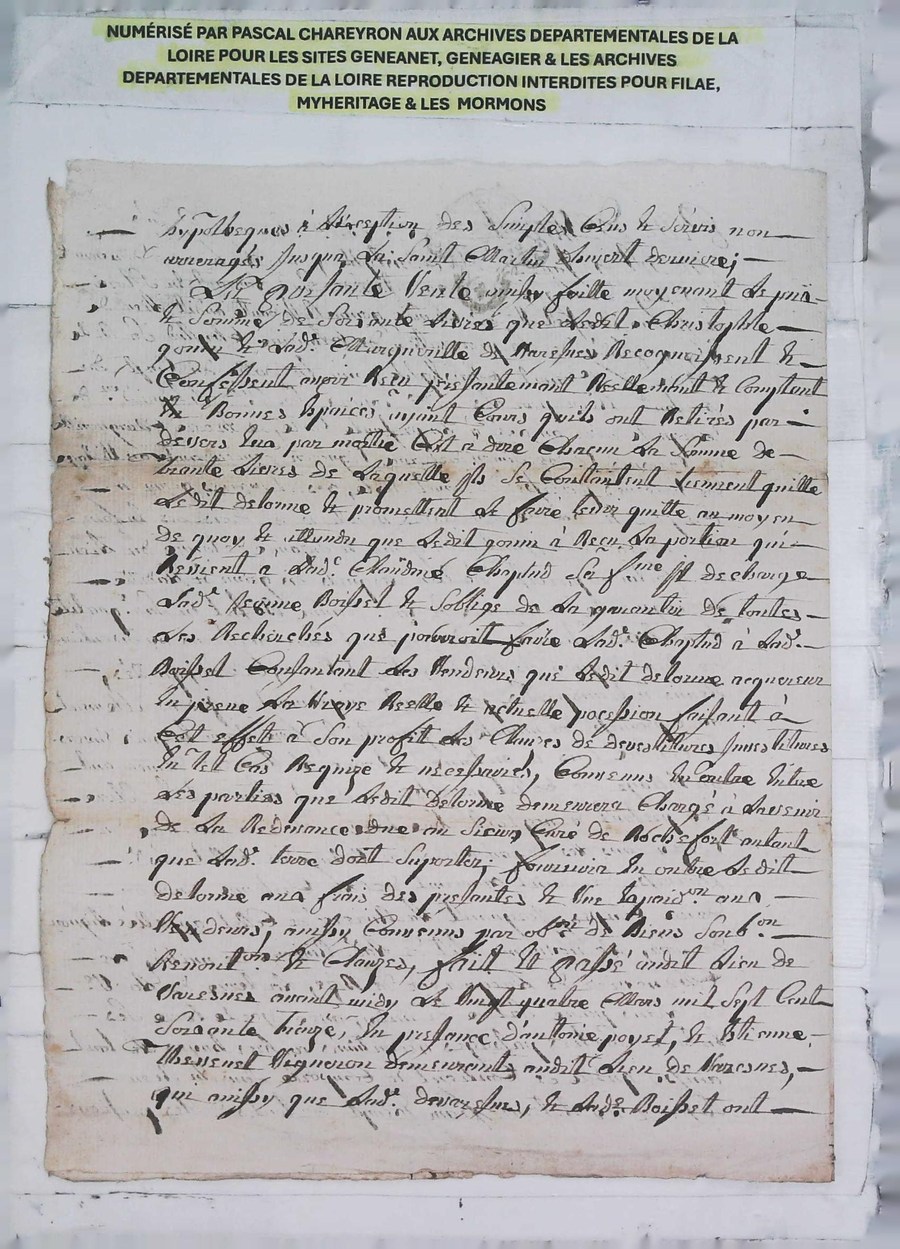 NUMÉRISÉ PAR PASCAL CHAREYRON AUX ARCHIVES DEPARTEMENTALES DE LA
LOIRE POUR LES SITES GENEANET, GENEAGIER & LES ARCHIVES
DEPARTEMENTALES DE LA LOIRE REPRODUCTION INTERDITES POUR FILAE,
MYHERITAGE & LES MORMONS
hypotheques à l'éxception des simples Cens & servis non
arreragés jusqua La Saint Martin dernière;
La présante Vente ainsy faitte moyenant le prix
& Somme de Soixante Livres que Ledit Christophle
gonin & Lad. de Varesnes Recognoissent &
Confessent avoir Recu présantement Réellement & Comptant
En Bonnes Espaices ayant Cours quils ont Retirés par
devers Eux par moitié C'est a dire Chacun La Somme de
trante Livres de Laquelle ils se Contantent tiennent quitte
Ledit delorme & promettent le faire tenir quitte au moyen
de quoy & attandu que Ledit gonin à Recu La portion qui
Revient à Lad.e Claudine Chaptud Sa fme Il decharge
Lad.e Boisset & soblige de La garantir de toutes
Les Recherches que pourroit faire Lad.e Chaptud à Lad.e
Boisset Consantant Les Vendeurs que Ledit delorme acquereur
En prene La Vraye Réelle & actuelle pocession faisant à
Cet effets à Son profit Les Clauzes de devestitures Investitures
En tel Cas Requize & nécessaires, Convenus En outre Entre
Les parties que Ledit Delorme demeurera Chargé à Lavenir
de La Redevance due au Sieur Curé de Rochefort autant
que Lad.e terre doit Suporter; fournira En outre Ledit
delorme aux frais des présantes & Une aux
Vendeurs; ainsy Convenus par ob.on de Biens Soub.on
Renont.on & Clauzes, fait & passé audit Lieu de
Varesnes avant midy Le Vingt quatre Mars mil Sept Cent
Soixante treize, En présance d'antoine poyet, & Etienne
Thevenet Vigneron demeurants audit Lieu de Varesnes,
qui ainsy que Lad.e devaresnes, & Lad.e Boisset ont